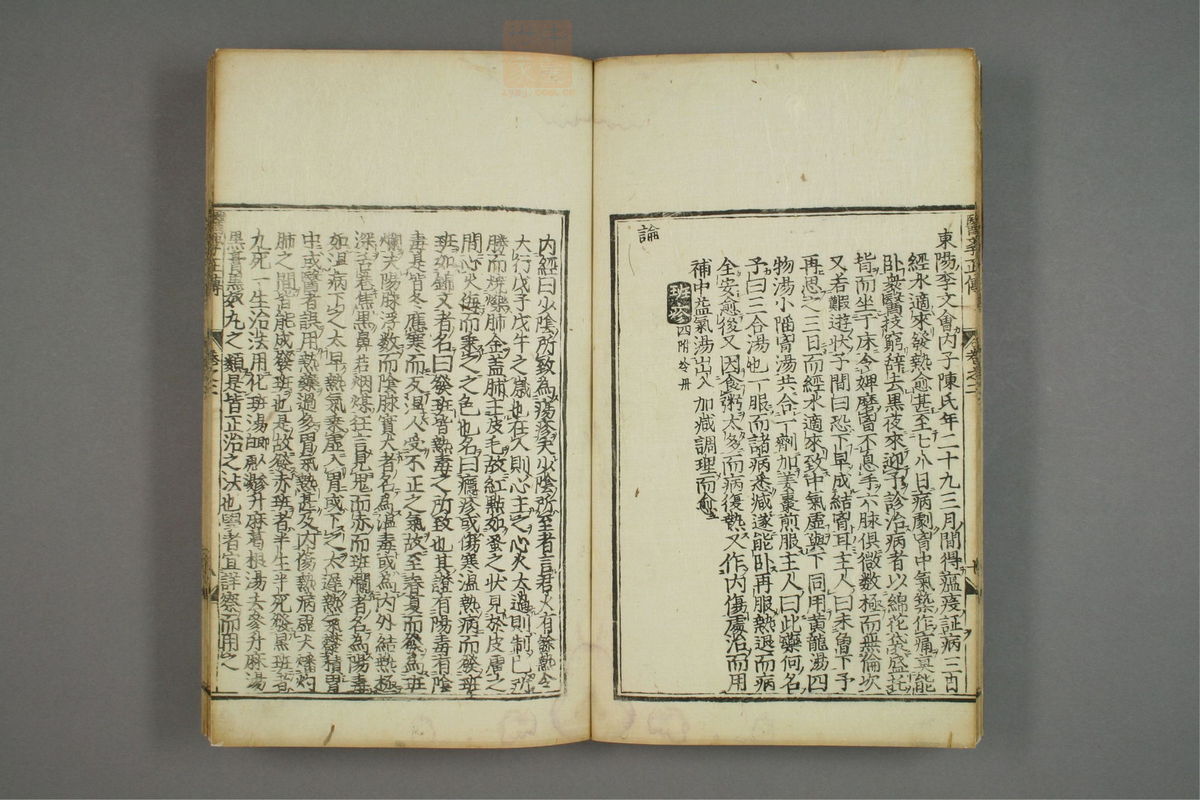 東陽李文會内子陳氏年二十九三月間得瘟疫証病三日
經水適來發熱愈甚至七八日病劇胷中氣築作痛莫能
卧衆醫技窮辭去黑夜來迎予診治病者以綿花袋盛托
背而坐于床令婢磨胷不息手六脉俱微數極而無倫次
又若蝦遊狀子問曰恐下早成結胷耳主人曰未曾下予
再思之三日而經水適來致中氣虚與下同用黄龍湯四
物湯小陷胷湯共合一劑加姜棗煎服主人曰此藥何名
予曰三合湯也一服而諸病悉減遂能卧再服熱退而病
全安愈後又因食粥太多而病復熱又作内傷處治而用
補中益氣湯出入加減調理而愈
班疹
論
内經曰少陰所致為瘍疹夫少陰所至者言君火有餘熱令
大行戊子戊午之歳也在人則心主之心火太過則制己所
勝而燒爍肺金盖肺主皮毛故紅點如蚤之状見於皮膚之
間心火侮而乘之之色也名曰癮疹或傷寒温熱病而發班
班如錦文者名曰發班皆熱毒之所致也其證有陽毒有陰
毒甚皆冬應寒而反温人受不正之氣故至春夏而發為班
爛夫陽脉浮數而陰脉實大者名為温毒或為内外結熱極
深舌卷焦黒鼻若烟煤狂言見鬼而赤而班爛者名為陽毒
如温病下之太早熱氣乘虚入胃或下之太遲熱留
中或醫者誤用熱藥過多胃氣熱甚及内傷熱病虚火燔灼
肺之間皆能成發班也是故發赤班者半生半死發黒班者
九死一生治法用化班湯升麻葛根湯去參升麻湯
黒膏黒奴丸之類是皆正治之法也學者宜詳察而用之